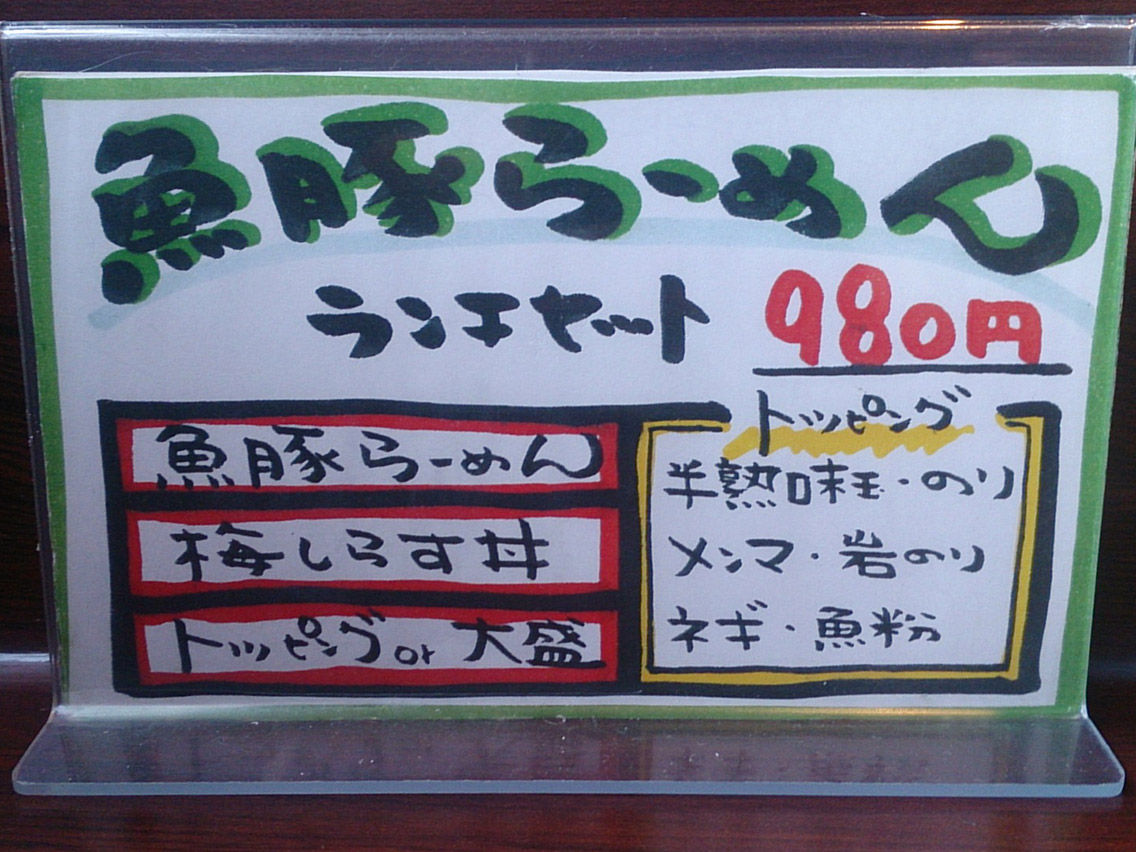 魚豚らーめん
ランチセット 980円
魚豚らーめん
梅しらす丼
トッピングor大盛
トッピング
半熟味玉・のり
メンマ・岩のり
ネギ・魚粉